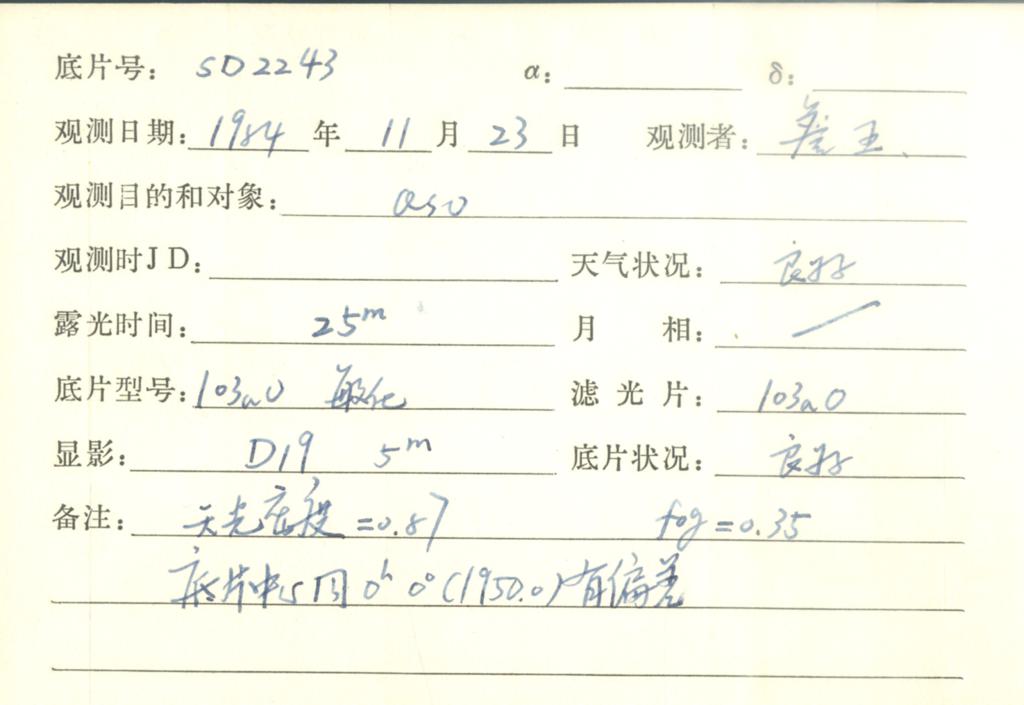 底片号: SD2243 α: δ:
观测日期: 1984 年 11 月 23 日 观测者: 詹 王、
观测目的和对象: QSO
观测时JD: 天气状况: 良好
露光时间: 25m 月 相: /
底片型号: 103aO 敏化 滤光片: 103aO
显影: D19 5m 底片状况: 良好
备注: 天光密度=0.87 fog=0.35
底片中心同 0h 0°(1950.0)有偏差